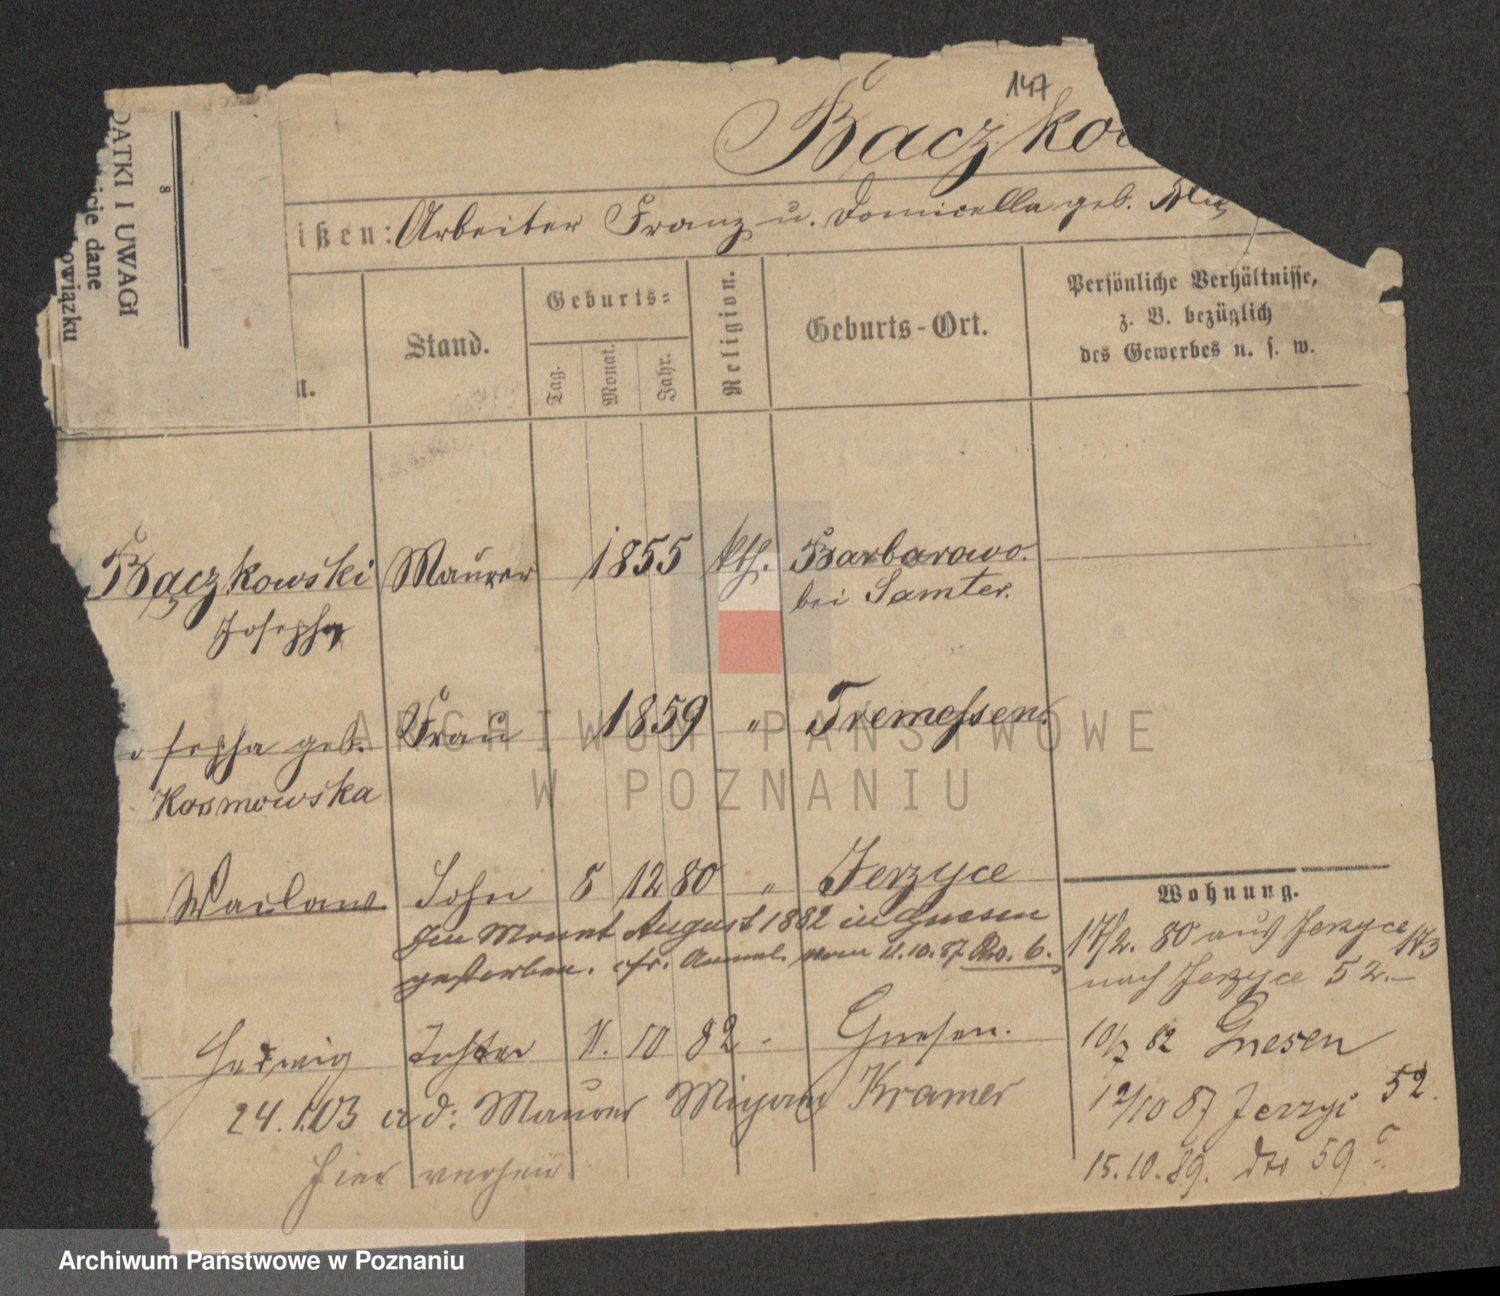 147
Bączkow
ißen: Arbeiter Franz u. Domicella geb.
DATKI I UWAGI
8
cie dane
owiązku
n.
Stand.
Geburts-
Tag.
Monat.
Jahr.
Religion.
Geburts-Ort.
Persönliche Verhältnisse,
z. B. bezüglich
des Gewerbes u. s. w.
Bączkowski Maurer 1855 kth. Barbarowo.
Josepha bei Samter.
osepha geb. Frau 1859 " Tremessen.
Kosmowska
Waclaw Sohn 5 12 80 " Jerzyce
Im Monat August 1882 in Gnesen
gestorben. cfr. Anmel. vom 11.10.87 No. 6.
Hedwig Tochter 11. 10 82 - Gnesen.
24.1.03 a d: Maurer Kramer
hier
Wohnung.
17/2. 80 aus Jerzyce 173
nach Jerzyce 52.—
10/7 82 Gnesen
12/10 87 Jerzyi 52.
15.10.89. dto 59 c
ARCHIWUM PAŃSTWOWE
W POZNANIU
Archiwum Państwowe w Poznaniu